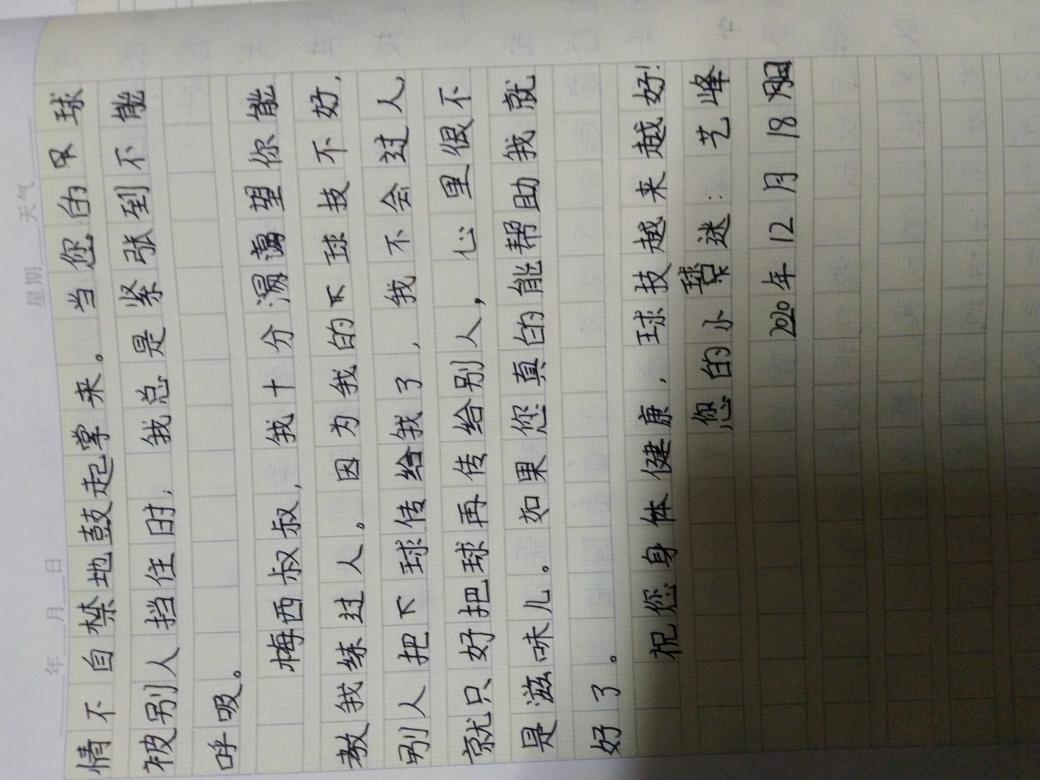 年 月 日 星期 天气
情不自禁地鼓起掌来。当您的 球
被别人挡住时，我总是紧张到不能
呼吸。
梅西叔叔，我十分渴望你能
教我练过人。因为我的 球技不好，
别人把 球传给我了，我不会过人，
就只好把球再传给别人，心里很不
是滋味儿。如果您真的能帮助我就
好了。
祝您身体健康，球技越来越好！
您的小球迷：艺峰
2020年12月18日